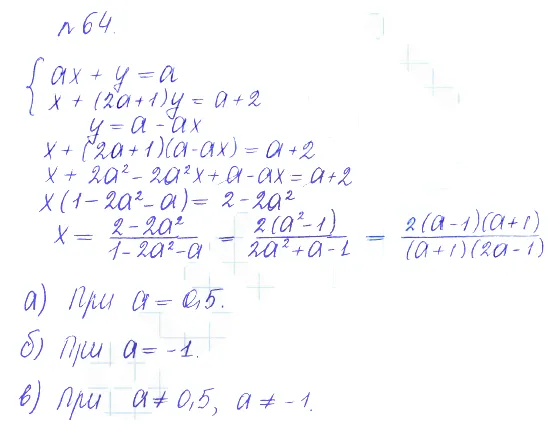 n 64.
{ ax + y = a
x + (2a+1)y = a+2
y = a - ax
x + (2a+1)(a-ax) = a+2
x + 2a² - 2a²x + a - ax = a+2
x(1-2a²-a) = 2-2a²
x = (2-2a²)/(1-2a²-a) = 2(a²-1)/(2a²+a-1) = 2(a-1)(a+1)/((a+1)(2a-1))
а) При a = 0,5.
б) При a = -1.
в) При a ≠ 0,5, a ≠ -1.